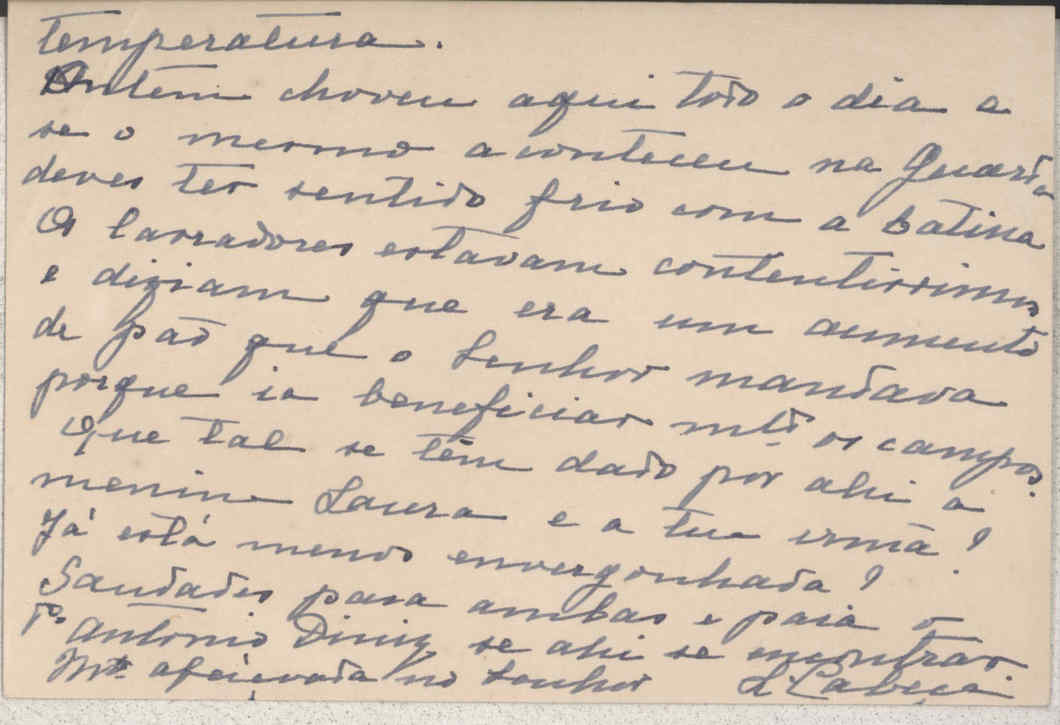 temperatura.
Ontem choveu aqui todo o dia e
se o mesmo aconteceu na Guarda
deves ter sentido frio com a batina
Os lavradores estavam contentissimos
e diziam que era um aumento
de pão que o Senhor mandava
porque ia beneficiar mtº os campos.
Que tal se têm dado por ahi a
menina Laura e a tua irmã?
Já está menos envergonhada?
Saudades para ambas e para o
Pe António Diniz, se ahi se encontrar
Mtº afeiçoada no Senhor